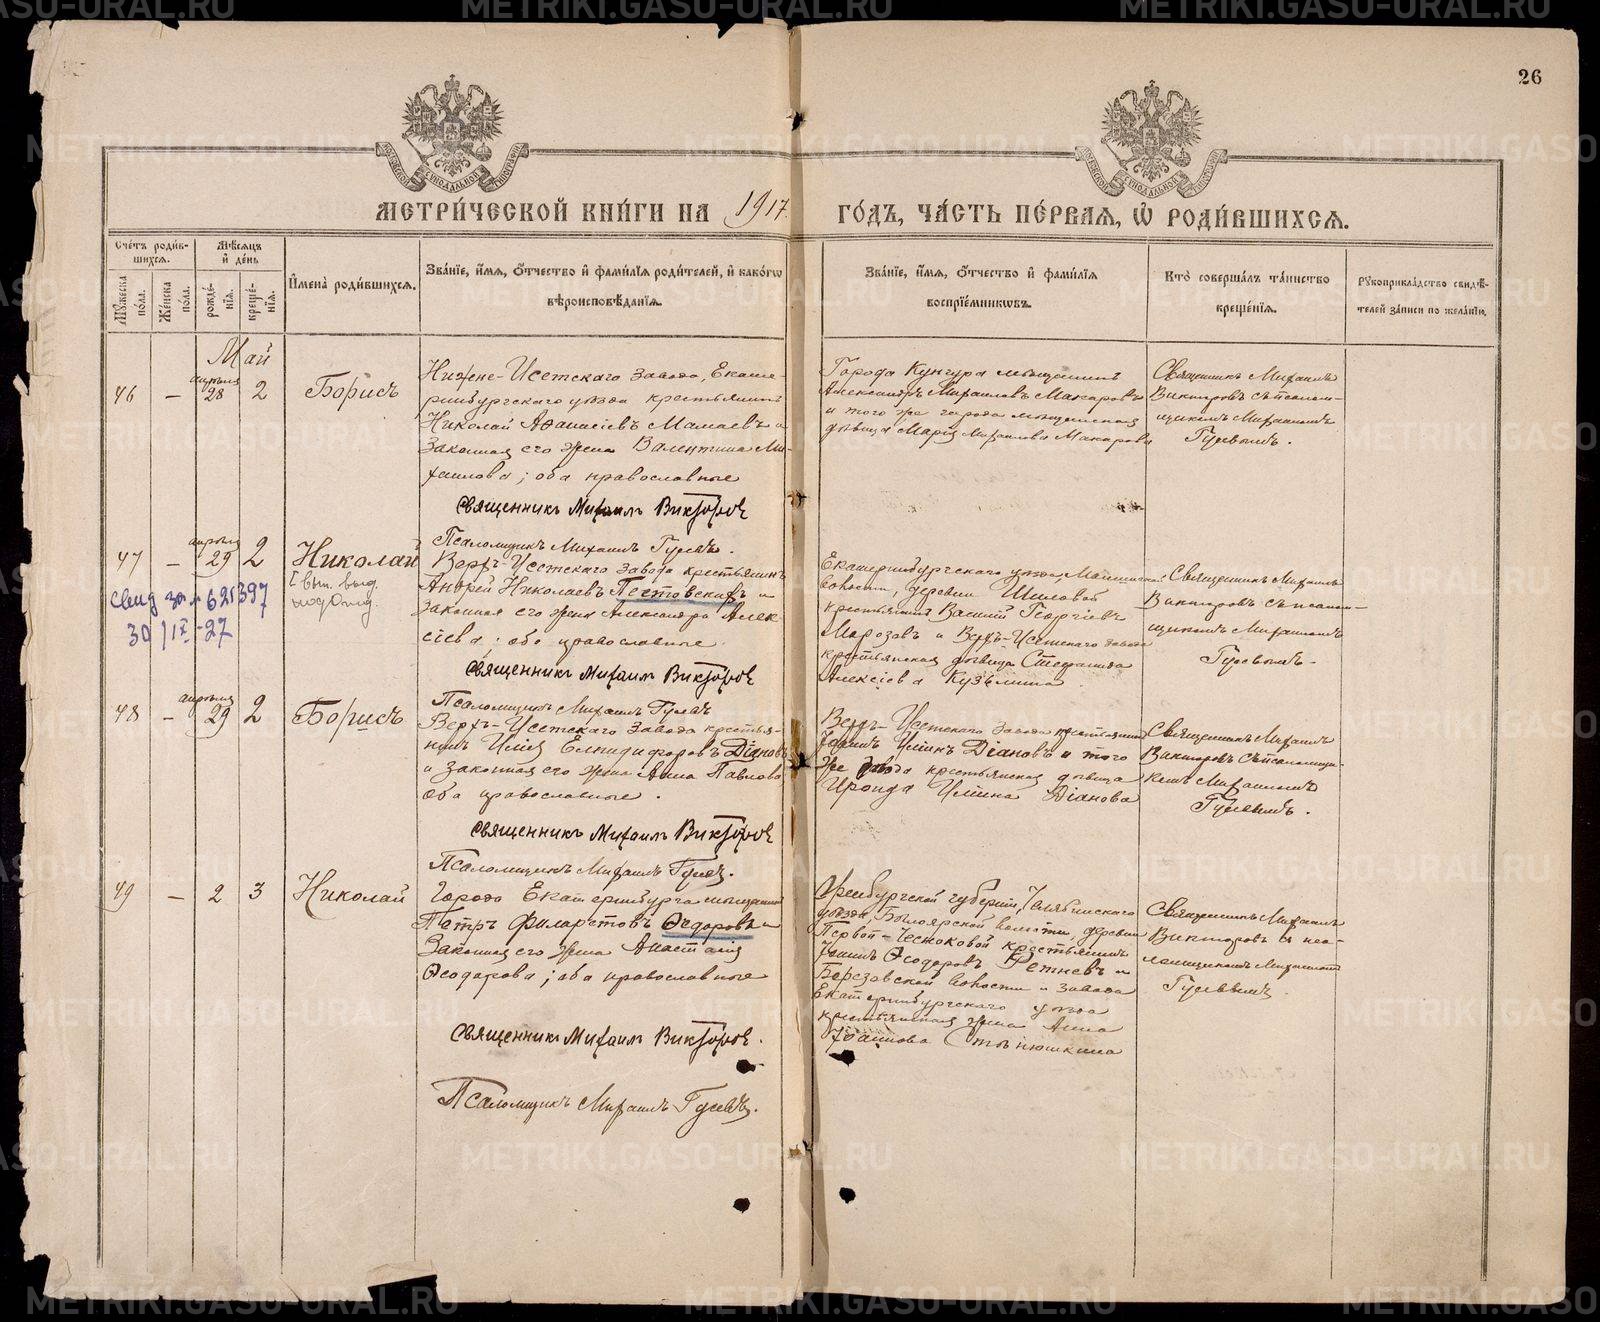 26
МЕТРИ́ЧЕСКОЙ КНИ́ГИ НА 1917 ГО́ДЪ, ЧА́СТЬ ПЕ́РВАЯ, Ѡ҆ РОДИ́ВШИХСЯ.
Сче́тъ роди́вшихся.
Мѣ́сяцъ и҆ де́нь
Му́жеска по́ла.
Же́нска по́ла.
рожде́нія.
креще́нія.
И҆мена̀ роди́вшихся.
Зва́ніе, и҆́мя, ѻ҆́тчество и҆ фами́лія роди́телей, и҆ како́гѡ
вѣроисповѣ́данія.
Зва́ніе, и҆́мя, ѻ҆́тчество и҆ фами́лія
воспріе́мникѡвъ.
Кто̀ соверша́лъ та́инство
креще́нія.
Рꙋкоприкла́дство свидѣ́-
телей за́писи по жела́нію.
Май
46 – апрѣля 28 2 Борисъ
Нижне-Исетскаго завода, Екате-
ринбургскаго уѣзда крестьянинъ
Николай Аѳанасіевъ Мамаевъ и
законная его жена Валентина Ми-
хаилова; оба православные
Священникъ Михаилъ Викторовъ
Псаломщикъ Михаилъ Гусевъ.
Города Кунгура мѣщанинъ
Александръ Михаиловъ Макаровъ
и того же города мѣщанская
дѣвица Марія Михаилова Макарова
Священникъ Михаилъ
Викторовъ съ псалом-
щикомъ Михаиломъ
Гусевымъ.
47 – апрѣля 29 2 Николай
свид за № 621397
30/IX-27
Верхъ-Исетскаго завода крестьянинъ
Андрей Николаевъ Пестовскихъ и
законная его жена Александра Алек-
сіева; оба православные.
Священникъ Михаилъ Викторовъ
Псаломщикъ Михаилъ Гусевъ
Екатеринбургскаго уѣзда,
волости, деревни Шиловой
крестьянинъ Василій Георгіевъ
Морозовъ и Верхъ-Исетскаго завода
крестьянская дѣвица Стефанида
Алексіева Кузьмина.
Священникъ Михаилъ
Викторовъ съ псалом-
щикомъ Михаиломъ
Гусевымъ.
48 – апрѣля 29 2 Борисъ
Верхъ-Исетскаго завода крестья-
нинъ Илія Елпидифоровъ Діановъ
и законная его жена Анна Павлова
оба православные.
Священникъ Михаилъ Викторовъ
Псаломщикъ Михаилъ Гусевъ.
Верхъ-Исетскаго завода крестьянинъ
Іоаннъ Иліинъ Діановъ и того
же завода крестьянская дѣвица
Ираида Иліина Діанова
Священникъ Михаилъ
Викторовъ съ псаломщи-
комъ Михаиломъ
Гусевымъ.
49 – 2 3 Николай
Города Екатеринбурга мѣщанинъ
Петръ Филаретовъ Ѳедоровъ и
законная его жена Анастасія
Ѳеодорова; оба православные
Священникъ Михаилъ Викторовъ.
Псаломщикъ Михаилъ Гусевъ.
Оренбургской губерніи, Челябинскаго
уѣзда, Бѣлоярской волости, деревни
Первой-Чесноковой крестьянинъ
Іоаннъ Ѳеодоровъ Ретневъ и
Березовской волости и завода
Екатеринбургскаго уѣзда
крестьянская жена Анна
Іоаннова Стенюшкина
Священникъ Михаилъ
Викторовъ съ пса-
ломщикомъ Михаиломъ
Гусевымъ.
METRIKI.GASO-URAL.RU